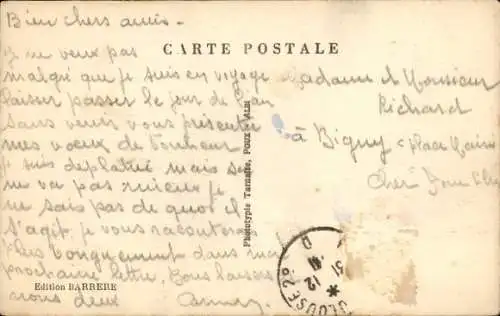 Bien chers amis.
CARTE POSTALE
Je ne veux pas
malgré que je suis en voyage
laisser passer le jour de l'an
sans venir vous présenter
mes vœux de bonheur
je suis mais
ne va pas mieux je
ne sais pas de quoi il
s'agit je vous raconterai
plus longuement dans ma
prochaine lettre. Bons baisers
nous deux
Madame et Monsieur
Richard
à Bigny place
Cher
Phototypie Tarnaise, POUX, ALBI
Edition BARRERE
31
12